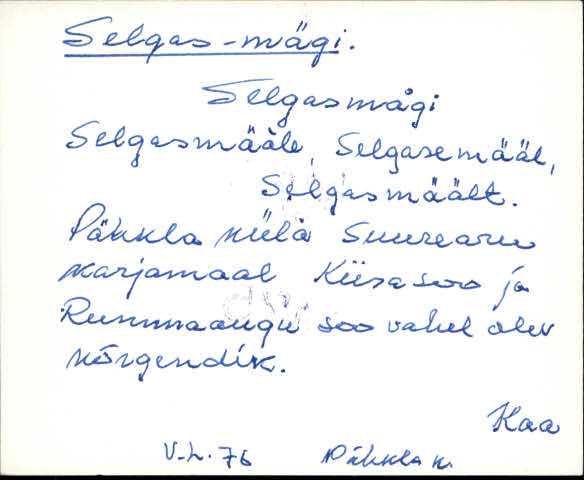 Selgas-mägi.
Selgasmägi
Selgasmääle, Selgasemääl,
Selgasmäält.
Pähkla külä Suurearu
karjamaal Kiisa soo ja
Rummaaugu soo vahel olev
kõrgendik.
Kaa
V-L. 76 Pähkla k.